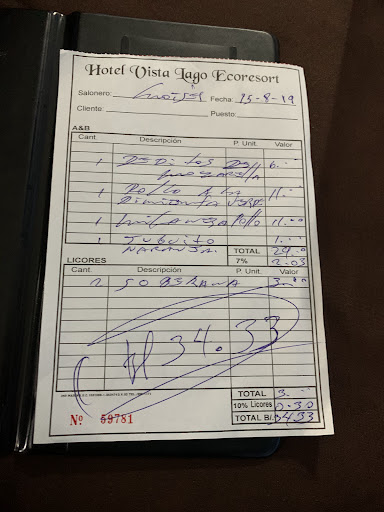 Hotel Vista Lago Ecoresort
Salonero: Fecha: 15-8-19
Cliente: Puesto:
A&B
Cant. Descripción P. Unit. Valor
1 DEDITOS DE 6.00
MOZARELLA
1 POLLO A LA 11.00
PIMIENTA VERDE
1 MILANESA POLLO 11.00
1 JUGUITO 1.00
NARANJA. TOTAL 29.00
7% 2.03
LICORES
Cant. Descripción P. Unit. Valor
2 SOBERANA 3.00
34.33
TOTAL 3.00
10% Licores 0.30
TOTAL B/. 34.33
Nº 59781